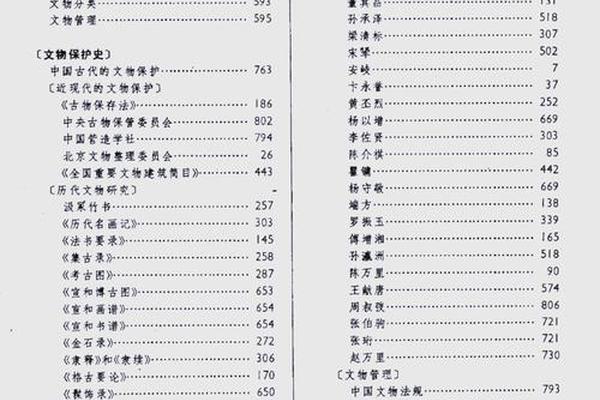 文物分类 593
文物管理 595
〔文物保护史〕
中国古代的文物保护 763
〔近现代的文物保护〕
《古物保存法》 186
中央古物保管委员会 802
中国营造学社 794
北京文物整理委员会 26
《全国重要文物建筑简目》 443
〔历代文物研究〕
汲冢竹书 257
《历代名画记》 303
《法书要录》 145
《集古录》 258
《考古图》 287
《宣和博古图》 653
《宣和画谱》 654
《宣和书谱》 654
《金石录》 272
《隶释》和《隶续》 306
《格古要论》 170
《髹饰录》 650
董其昌 131
孙承泽 518
梁清标 307
宋荦 502
安岐 7
卞永誉 37
黄丕烈 252
杨以增 669
李佐贤 303
陈介祺 85
瞿镛 442
杨守敬 669
端方 138
罗振玉 339
傅增湘 165
孙瀛洲 518
陈万里 90
王献唐 574
周叔弢 806
张伯驹 721
张珩 721
赵万里 730
〔文物管理〕
中国文物法规 793